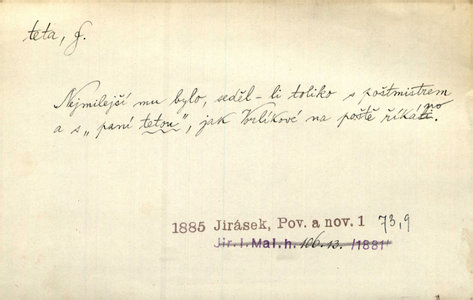 teta, f.
Nejmilejší mu bylo, seděl-li toliko s poštmistrem
a s „paní tetou", jak Vorlíkové na poště říkáno.
1885 Jirásek, Pov. a nov. 1 73,9
Jir. I. Mal. h. 106.13. /1881/